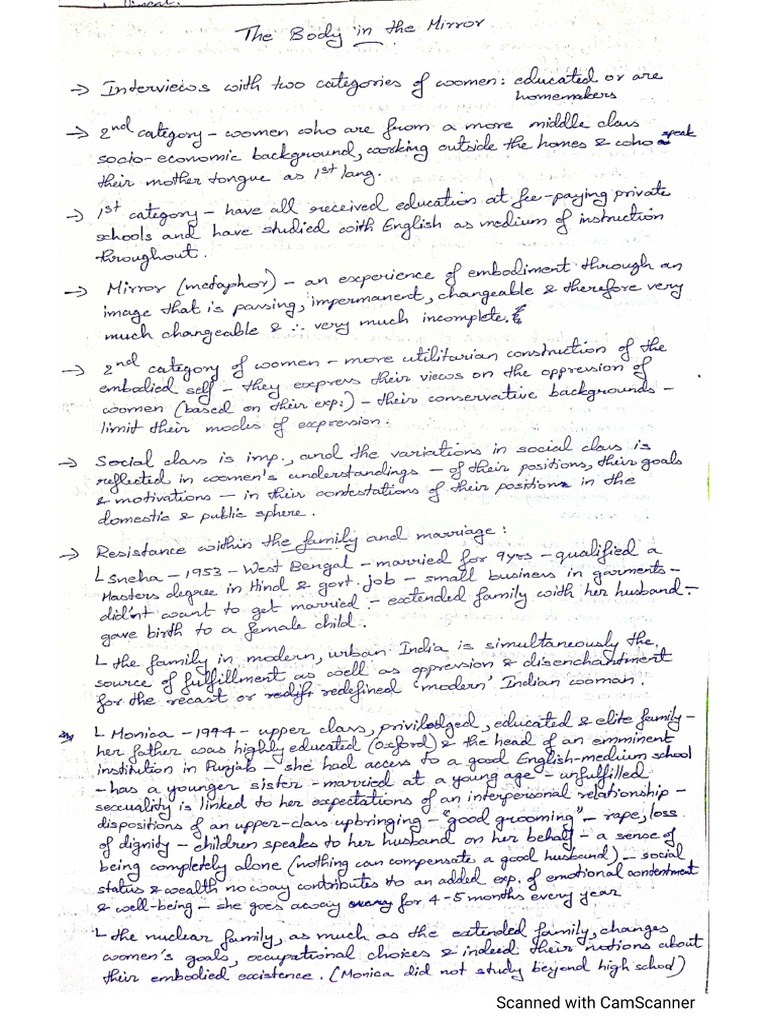 The Body in the Mirror
→ Interviews with two categories of women: educated or are
homemakers
→ 2nd category – women who are from a more middle class
socio-economic background, working outside the homes & who speak
their mother tongue as 1st lang.
→ 1st category – have all received education at fee-paying private
schools and have studied with English as medium of instruction
throughout.
→ Mirror (metaphor) – an experience of embodiment through an
image that is passing, impermanent, changeable & therefore very
much changeable & ∴ very much incomplete.
→ 2nd category of women – more utilitarian construction of the
embodied self – they express their views on the oppression of
women (based on their exp:) – their conservative backgrounds –
limit their modes of expression.
→ Social class is imp., and the variations in social class is
reflected in women's understandings – of their positions, their goals
& motivations – in their contestations of their positions in the
domestic & public sphere.
→ Resistance within the family and marriage:
└ Sneha – 1953 – West Bengal – married for 9yrs – qualified a
Masters degree in Hind & govt. job – small business in garments –
did'nt want to get married – extended family with her husband –
gave birth to a female child.
└ the family in modern, urban India is simultaneously the
source of fulfillment as well as oppression & disenchantment
for the recast or redefined 'modern' Indian woman.
└ Monica – 1944 – upper class, priviledged, educated & elite family –
her father was highly educated (Oxford) & the head of an emminent
institution in Punjab – she had access to a good English-medium school
– has a younger sister – married at a young age – unfulfilled
sexuality is linked to her expectations of an interpersonal relationship –
dispositions of an upper-class upbringing – "good grooming" – rape, loss
of dignity – children speaks to her husband on her behalf – a sense of
being completely alone (nothing can compensate a good husband) – social
status & wealth no way contributes to an added exp. of emotional contentment
& well-being – she goes away for 4-5 months every year
└ the nuclear family, as much as the extended family, changes
women's goals, occupational choices & indeed their notions about
their embodied existence. (Monica did not study beyond high school)
Scanned with CamScanner